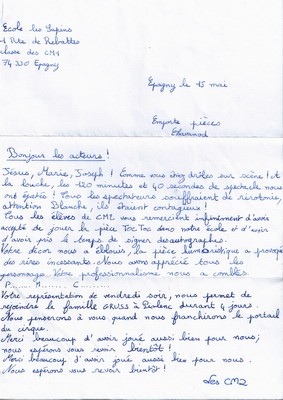 Ecole les Sapins
1 Rte de
classe des CM1
74 330 Epagny
Epagny le 15 mai
Emporte pièces
Bonjour les acteurs!
Jésus, Marie, Joseph! Comme vous étiez drôles sur scène! et
la bouche, les 120 minutes et 40 secondes de spectacle nous
ont épatés! Tous les spectateurs souffraient de ririotomie,
attention Blanche, ils étaient contagieux!
Tous les élèves de CM2 vous remercient infiniment d'avoir
accepté de jouer la pièce Toc Toc dans notre école et d'avoir
d'avoir pris le temps de signer des autographes.
Votre décor nous a éblouis, la pièce humoristique a provoqué
des rires incessants. Nous avons apprécié tous les
personnages. Votre professionnalisme nous a comblés.
P....... M....... C.........
Votre représentation de vendredi soir, nous permet de
rejoindre la famille GRUSS à Piolenc durant 4 jours.
Nous penserons à vous quand nous franchirons le portail
du cirque.
Merci beaucoup d'avoir joué aussi bien pour nous;
nous espérons vous revoir bientôt!
Merci beaucoup d'avoir joué aussi bien pour nous.
Nous espérons vous revoir bientôt!
Les CM2